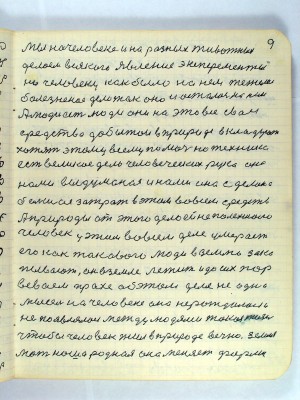 9
Мы на человеке и на разных животных
делаем всякого явления эксперементы
на человеку как было на нем тяжело
болезненое дело так оно и осталось на нем
А тодист люди они на это все свои
средства добытои в природе вкладуют
хотят этому всему помоч но техника
ест великое дело человеческих рука она
нами выдумоная и нами она сделана
больших затрат в этом во всем средств
А природы от этого дела ей не полегчало
человек у этим во всем деле умерает
его как такового люди в землю зако
пывают, он в земле лежит и до сих пор
ве своем прахе об этом деле не одна
мисля на человеке она не рождалась
не появлялас между людями такая мисля
чтобы человек жил в природе вечно. земля
мат ноша родная она меняет формы